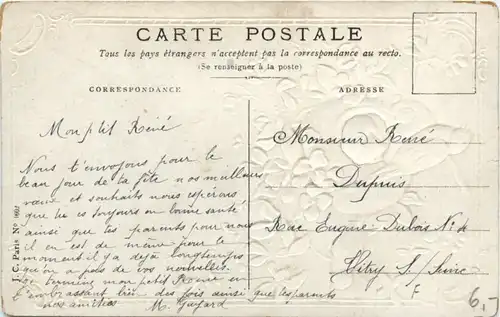 CARTE POSTALE
Tous les pays étrangers n'acceptent pas la correspondance au recto.
(Se renseigner à la poste)
CORRESPONDANCE
ADRESSE
Mon ptit René
Nous t'envoyons pour le
beau jour de ta fête nos meilleurs
vœux et souhaits nous espérons
que tu es toujours en bonne santé
ainsi que tes parents pour nous
il en est de même pour le
moment il y a déjà longtemps
qu'on a pas de vos nouvelles.
Je termine mon petit René en
t'embrassant bien des fois ainsi que tes parents
nos amitiés
M.
Monsieur René
Dupuis
Rue Eugène Dubois No 4
Vitry S/ Seine
J. C. Paris No
F
6,-